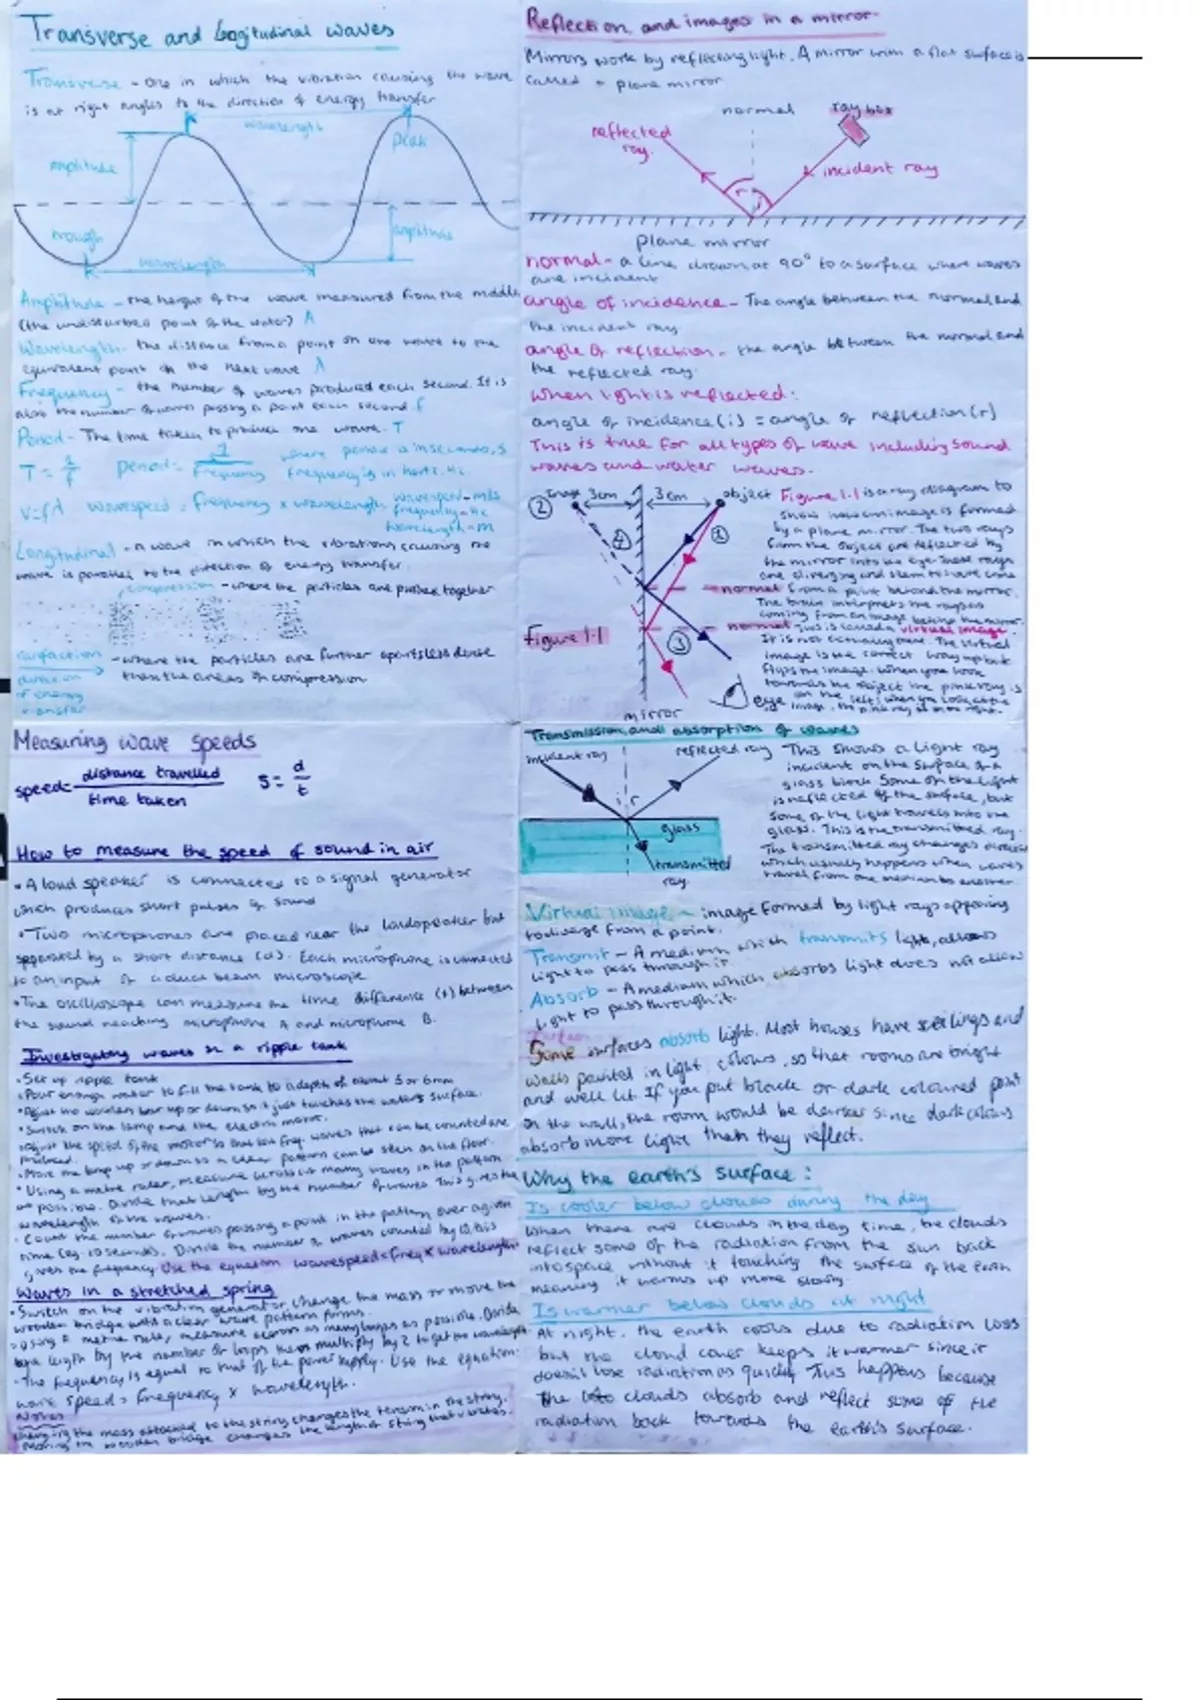 Transverse and Logitudinal waves
Transverse - One in which the vibration causing the wave
is at right angles to the direction of energy transfer
wavelength
peak
amplitude
trough
amplitude
wavelength
Amplitude - the height of the wave measured from the middle
(the undisturbed point of the water) A
Wavelength - the distance from a point on one wave to the
equivalent point on the next wave λ
Frequency - the number of waves produced each second. It is
also the number of waves passing a point each second f
Period - The time taken to produce one wave. T
T = 1/f period = 1/frequency where period is in seconds, s
frequency is in hertz, Hz
v=fλ wavespeed = frequency x wavelength wavespeed - m/s
frequency = Hz
wavelength = m
Longitudinal - a wave in which the vibrations causing the
wave is parallel to the direction of energy transfer.
compression - where the particles are pushed together
rarefaction - where the particles are further apart/less dense
than the areas of compression
direction
of energy
transfer
Measuring wave speeds
speed = distance travelled / time taken s = d/t
How to measure the speed of sound in air
• A loud speaker is connected to a signal generator
which produces short pulses of sound
• Two microphones are placed near the loudspeaker but
separated by a short distance (d). Each microphone is connected
to an input of a dual beam microscope
• The oscilloscope can measure the time difference (t) between
the sound reaching microphone A and microphone B.
Investigating waves in a ripple tank
• Set up ripple tank
• Pour enough water to fill the tank to a depth of about 5 or 6mm
• Adjust the wooden bar up or down so it just touches the waters surface.
• Switch on the lamp and the electric motor.
• Adjust the speed of the motor so that low freq. waves that can be counted are
produced.
• Move the lamp up or down so a clear pattern can be seen on the floor.
• Using a metre ruler, measure across as many waves in the pattern
as possible. Divide that length by the number of waves. This gives the
wavelength of the waves.
• Count the number of waves passing a point in the pattern over a given
time (eg. 10 seconds). Divide the number of waves counted by 10, this
gives the frequency. Use the equation wavespeed = freq x wavelength
Waves in a stretched spring
• Switch on the vibration generator, change the mass or move the
wooden bridge until a clear wave pattern forms.
• Using a metre rule, measure across as many loops as possible. Divide
length by the number of loops then multiply by 2 to get the wavelength
• The frequency is equal to that of the power supply. Use the equation:
wave speed = frequency x wavelength.
Notes
Changing the mass attached to the string changes the tension in the string.
Moving the wooden bridge changes the length of string that vibrates.
Reflection and images in a mirror
Mirrors work by reflecting light. A mirror with a flat surface is
called a plane mirror
normal
ray box
reflected
ray.
incident ray
r
i
plane mirror
normal - a line drawn at 90° to a surface where waves
are incident
angle of incidence - The angle between the normal and
the incident ray
angle of reflection - the angle between the normal and
the reflected ray.
When light is reflected:
angle of incidence (i) = angle of reflection (r)
This is true for all types of wave including sound
waves and water waves.
② image 3cm 3cm object
①
④
normal
normal
③
Figure 1.1
eye
mirror
Figure 1.1 is a ray diagram to
show how an image is formed
by a plane mirror. The two rays
from the object are reflected by
the mirror into the eye. These rays
are diverging and seem to have come
from a point beyond the mirror.
The brain interprets the rays as
coming from an image behind the mirror.
This is called a virtual image.
It is not actually there. The virtual
image is the correct way up but
flips the image. When you look
towards the object the pink ray is
on the left; when you look at the
image, the pink ray is on the right.
Transmission and absorption of waves
incident ray
reflected ray
i r
glass
transmitted
ray
This shows a light ray
incident on the surface of a
glass block. Some of the light
is reflected off the surface, but
some of the light travels into the
glass. This is the transmitted ray.
The transmitted ray changes direction
which usually happens when waves
travel from one medium to another.
Virtual image - image formed by light rays appearing
to diverge from a point.
Transmit - A medium which transmits light, allows
light to pass through it
Absorb - A medium which absorbs light does not allow
light to pass through it.
Some surfaces absorb light. Most houses have ceilings and
walls painted in light colours, so that rooms are bright
and well lit. If you put black or dark coloured paint
on the wall, the room would be darker since dark colours
absorb more light than they reflect.
Why the earth's surface:
Is cooler below clouds during the day
When there are clouds in the day time, the clouds
reflect some of the radiation from the sun back
into space without it touching the surface of the Earth
meaning it warms up more slowly.
Is warmer below clouds at night
At night, the earth cools due to radiation loss
but the cloud cover keeps it warmer since it
doesn't lose radiation as quickly. This happens because
the clouds absorb and reflect some of the
radiation back towards the earth's surface.